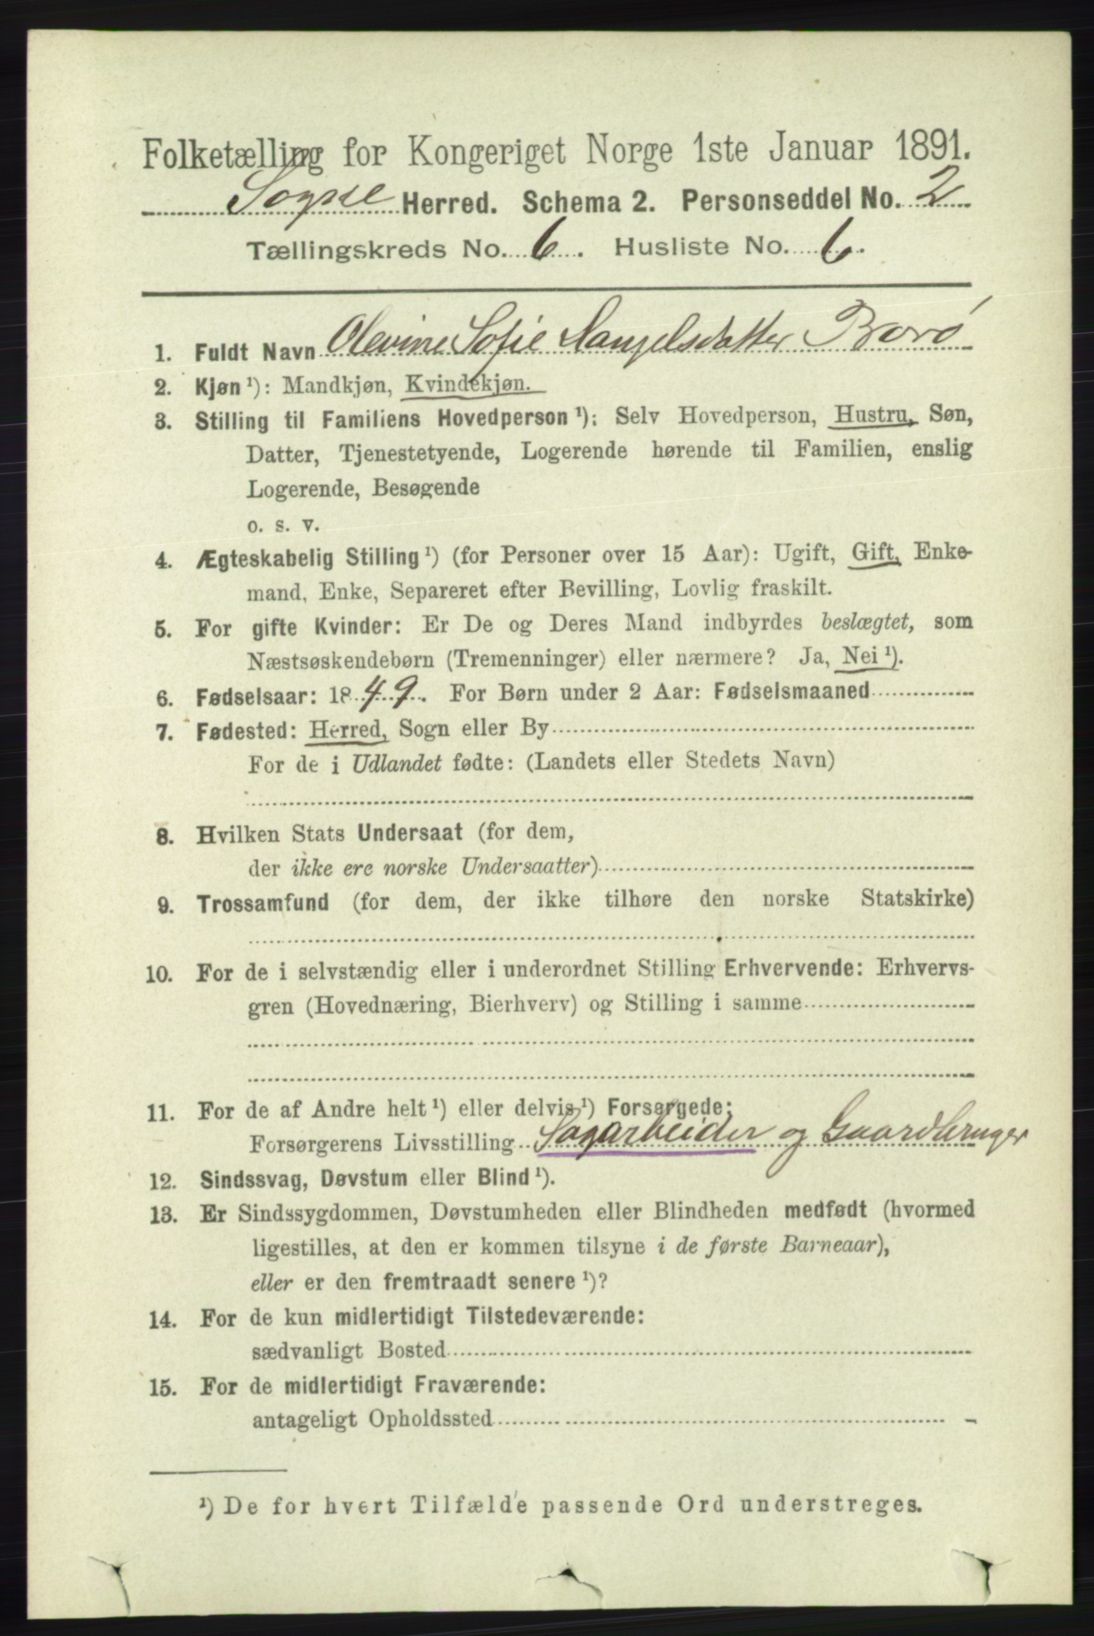 Folketælling for Kongeriget Norge 1ste Januar 1891.
Sogne Herred. Schema 2. Personseddel No. 2
Tællingskreds No. 6. Husliste No. 6.
1. Fuldt Navn Olevine Sofie Danjelsdatter Borø
2. Kjøn ¹): Mandkjøn, Kvindekjøn.
3. Stilling til Familiens Hovedperson ¹): Selv Hovedperson, Hustru, Søn,
Datter, Tjenestetyende, Logerende hørende til Familien, enslig
Logerende, Besøgende
o. s. v.
4. Ægteskabelig Stilling ¹) (for Personer over 15 Aar): Ugift, Gift, Enke-
mand, Enke, Separeret efter Bevilling, Lovlig fraskilt.
5. For gifte Kvinder: Er De og Deres Mand indbyrdes beslægtet, som
Næstsøskendebørn (Tremenninger) eller nærmere? Ja, Nei ¹).
6. Fødselsaar: 1849. For Børn under 2 Aar: Fødselsmaaned
7. Fødested: Herred, Sogn eller By
For de i Udlandet fødte: (Landets eller Stedets Navn)
8. Hvilken Stats Undersaat (for dem,
der ikke ere norske Undersaatter)
9. Trossamfund (for dem, der ikke tilhøre den norske Statskirke)
10. For de i selvstændig eller i underordnet Stilling Erhvervende: Erhvervs-
gren (Hovednæring, Bierhverv) og Stilling i samme
11. For de af Andre helt ¹) eller delvis ¹) Forsørgede:
Forsørgerens Livsstilling Sagarbeider og Gaardbruger
12. Sindssvag, Døvstum eller Blind ¹).
13. Er Sindssygdommen, Døvstumheden eller Blindheden medfødt (hvormed
ligestilles, at den er kommen tilsyne i de første Barneaar),
eller er den fremtraadt senere ¹)?
14. For de kun midlertidigt Tilstedeværende:
sædvanligt Bosted
15. For de midlertidigt Fraværende:
antageligt Opholdssted
¹) De for hvert Tilfælde passende Ord understreges.